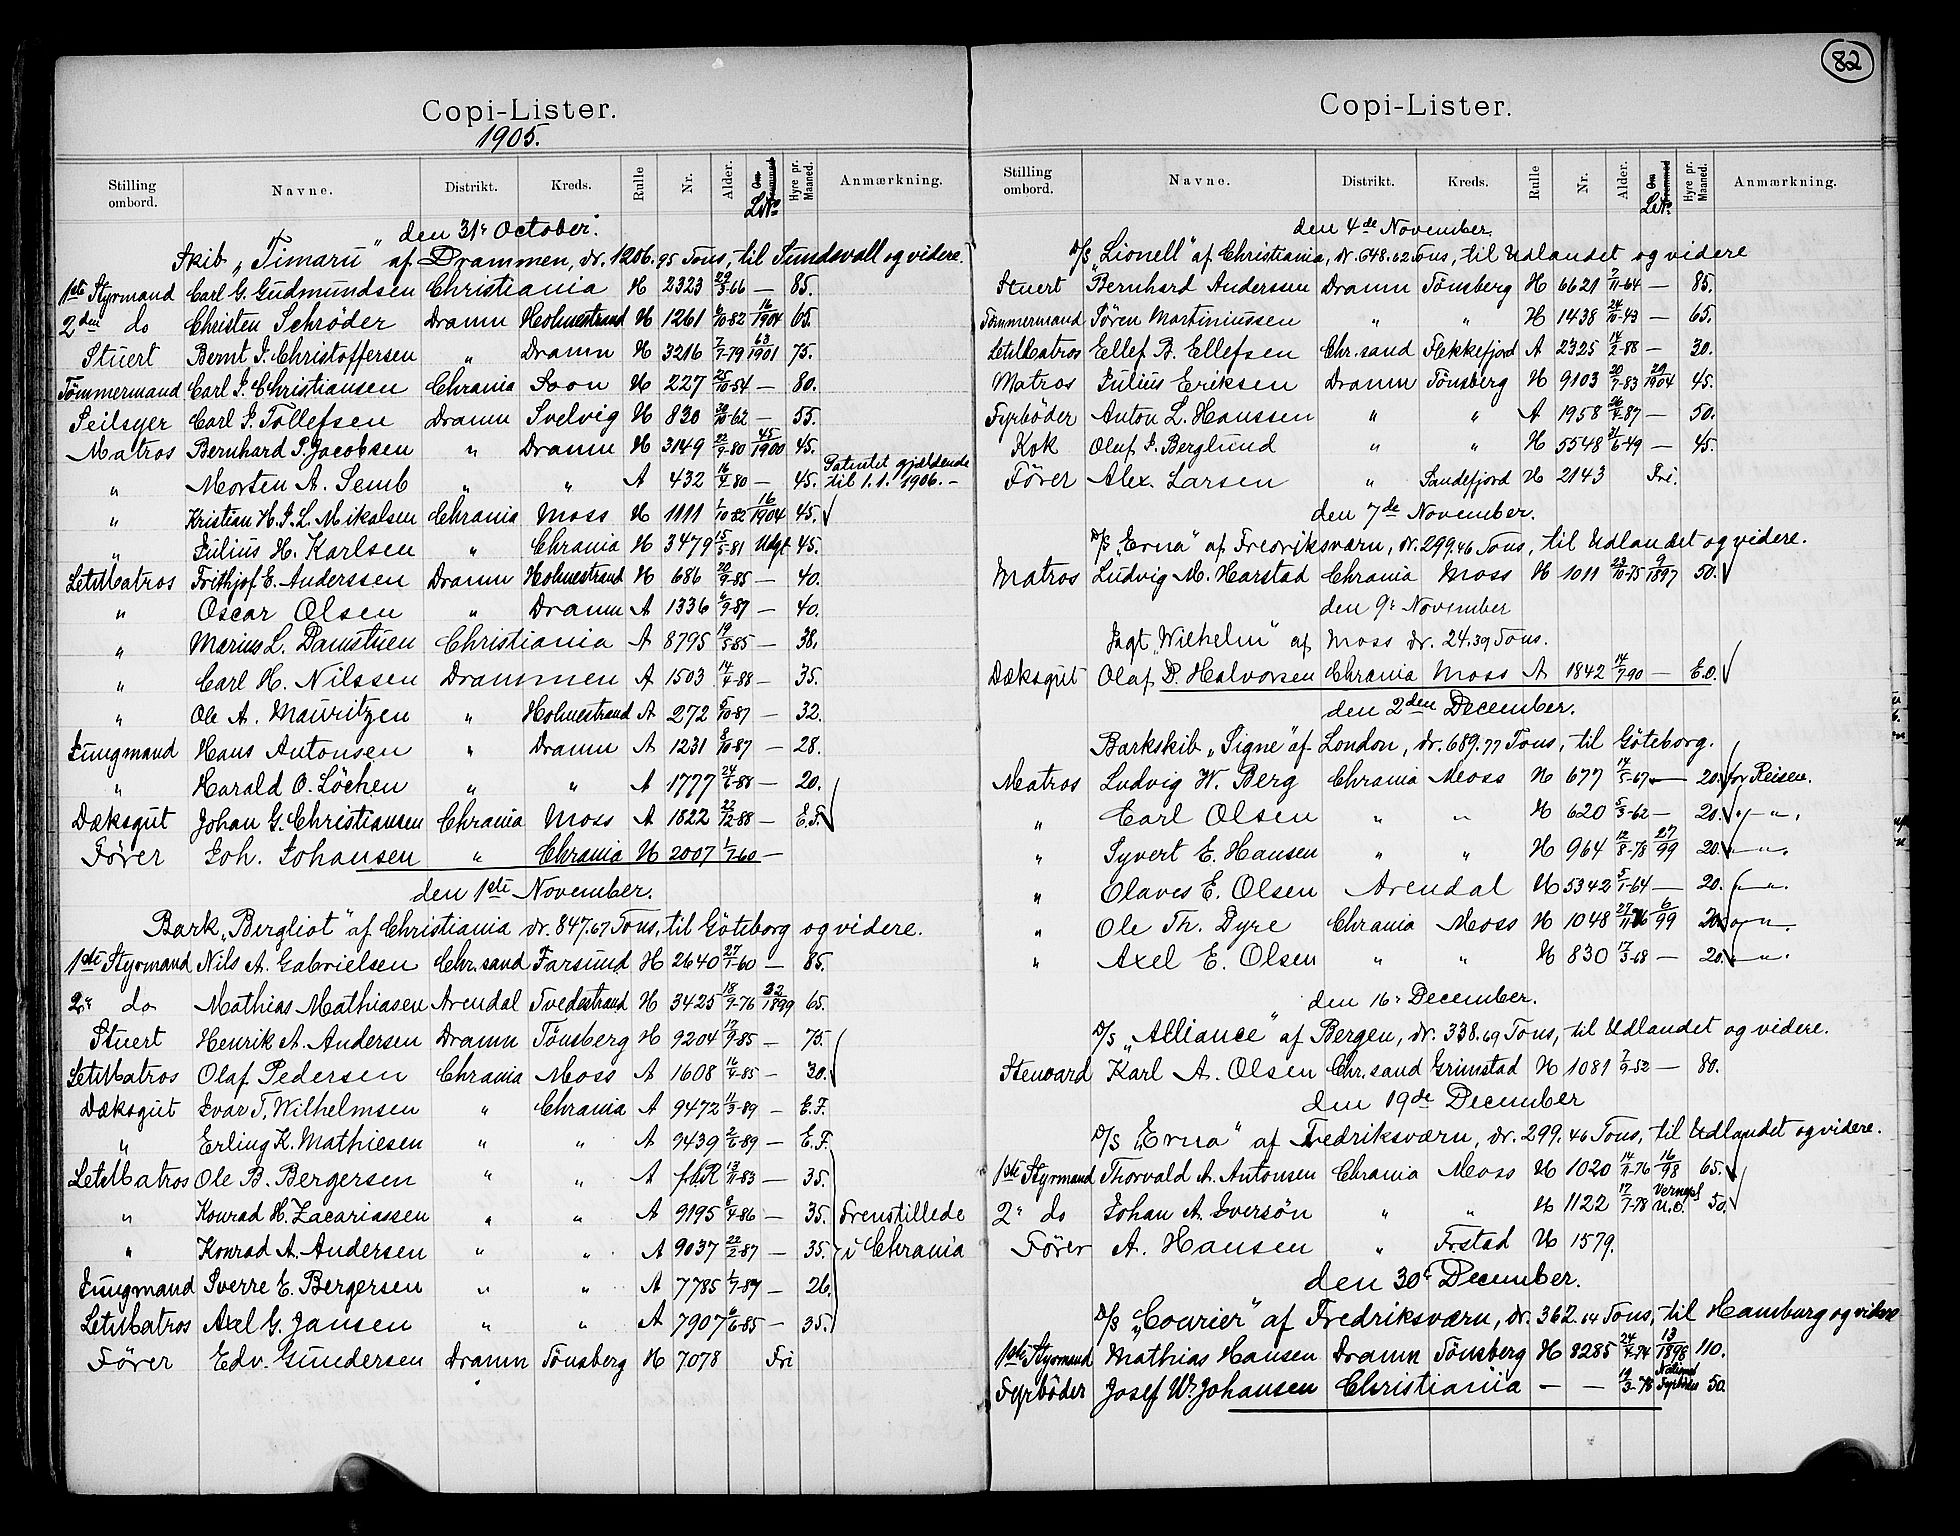 Copi-Lister.
1905.
Stilling ombord. Navne. Distrikt. Kreds. Rulle Nr. Alder. Hyre pr. Maaned. Anmærkning.
den 31' October.
Skib "Timaru" af Drammen, dr. 1206.95 Tons, til Sundsvall og videre.
1ste Styrmand Carl G. Gudmundsen Christiania H 2323 29/3-66 — 85.
2den do Christen Schröder Dramn Holmestrand H 1261 /10-82 16/1904 65.
Stuert Bernt J. Christoffersen " Dramn H 3216 7/7-79 63/1901 75.
Tömmermand Carl J. Christiansen Chrania Soon H 227 25/10-54 — 80.
Seilsyer Carl J. Tollefsen Dramn Svelvig H 830 20/10-62 — 55.
Matros Bernhard P. Jacobsen " Dramn H 3149 22/9-80 45/1900 45.
" Morten A. Semb " " A 432 16/4-80 — 45. Patentet gjældende til 1.1. 1906.-
" Kristian H. J. L. Mikalsen Chrania Moss H 1111 1/10-82 16/1904 45.
" Julius H. Karlsen " Chrania H 3479 15/5-81 Udgt 45.
LetMatros Frithjof E. Anderssen Dramn Holmestrand H 686 20/9-85 — 40.
" Oscar Olsen " Dramn A 1336 6/9-87 — 40.
" Marius L. Damstuen Christiania A 8795 19/5-85 — 38.
" Carl H. Nilssen Drammen A 1503 14/4-88 — 35.
" Ole A. Mauritzen " Holmestrand A 272 5/10-87 — 32.
Jungmand Hans Antonsen " Dramn A 1231 8/10-87 — 28.
" Harald O. Löchen " " A 1777 24/6-88 — 20.
Dæksgut Johan G. Christiansen Chrania Moss A 1822 22/12-88 — E.F.
Förer Joh. Johansen " Chrania H 2007 1/7-60 —
den 1ste November.
Bark "Bergliot" af Christiania dr. 847.67 Tons, til Göteborg og videre.
1ste Styrmand Nils A. Gabrielsen Chr.sand Farsund H 2640 27/1-60 — 85.
2' do Mathias Mathiasen Arendal Tvedestrand H 3425 18/9-76 32/1899 65.
Stuert Henrik A. Andersen Dramn Tönsberg H 9204 17/9-85 — 75.
LetMatros Olaf Pedersen Chrania Moss A 1608 16/4-85 — 30.
Dæksgut Ivar T. Wilhelmsen " Chrania A 9472 11/3-89 — E.F.
" Erling K. Mathiesen " " A 9439 2/6-89 — E.F.
LetMatros Ole B. Bergersen " " A 13/11-83 — 35.
" Konrad H. Zacariassen " " A 9195 8/4-86 — 35. Frenstillede
" Konrad A. Andersen " " A 9037 22/2-87 — 35. i Chrania
Jungmand Sverre E. Bergersen " " A 7785 1/7-87 — 26.
LetMatros Axel G. Jansen " " A 7907 6/6-85 — 35.
Förer Edv. Gundersen Dramn Tönsberg H 7078 Fri
82
Copi-Lister.
Stilling ombord. Navne. Distrikt. Kreds. Rulle Nr. Alder. Hyre pr. Maaned. Anmærkning.
den 4de November.
D/S "Lionell" af Christiania, dr. 648.62 Tons, til Udlandet og videre
Stuert Bernhard Anderssen Dramn Tönsberg H 6621 7/11-64 — 85.
Tömmermand Sören Martiniussen " " H 1438 24/10-43 — 65.
LetMatros Ellef B. Ellefsen Chr.sand Flekkefjord A 2325 14/2-88 — 30.
Matros Julius Eriksen Dramn Tönsberg H 9103 20/7-83 29/1904 45.
Fyrböder Anton L. Hanssen " " A 1958 26/4-87 — 50.
Kok Oluf J. Berglund " " H 5548 21/6-49 — 45.
Förer Alex. Larsen " Sandefjord H 2143 Fri.
den 7de November.
D/S "Erna" af Fredriksværn, dr. 299.46 Tons, til Udlandet og videre.
Matros Ludvig M. Harstad Chrania Moss H 1011 23/10-75 9/1897 50.
den 9' November
Jagt "Wilhelm" af Moss dr. 24.39 Tons.
Dæksgut Olaf P. Halvorsen Chrania Moss A 1842 14/7-90 — E.O.
den 2den December.
Barkskib "Signe" af London, dr. 689.77 Tons, til Göteborg.
Matros Ludvig W. Berg Chrania Moss H 677 14/5-67 — 20. for Reisen.
" Carl Olsen " " H 620 5/3-62 — 20. — " .
" Syvert E. Hansen " " H 964 12/8-78 27/99 20. — " .
" Olaves E. Olsen Arendal H 5342 5/1-64 — 20. — " .
" Ole Th. Dyre Chrania Moss H 1048 27/11-76 6/99 20. — " —
" Axel E. Olsen " " H 830 17/3-68 — 20. — " .
den 16' December.
D/S "Alliance" af Bergen, dr. 338.69 Tons, til Udlandet og videre.
Steward Karl A. Olsen Chr.sand Grimstad H 1081 7/9-52 — 80.
den 19de December
D/S "Erna" af Fredriksværn, dr. 299.46 Tons, til Udlandet og videre.
1ste Styrmand Thorvald A. Antonsen Chrania Moss H 1020 14/9-76 16/98 65.
2' do Johan A. Iversön " " H 1122 17/7-78 U.O. 50.
Förer A. Hansen " Frstad H 1579.
den 30' December.
D/S "Courier" af Fredriksværn, dr. 362.64 Tons, til Hamburg og videre
1ste Styrmand Mathias Hansen Dramn Tönsberg H 8285 24/4-74 13/1898 110.
Fyrböder Josef W. Johansen Christiania — — 19/3-76 Fyrböder 50.